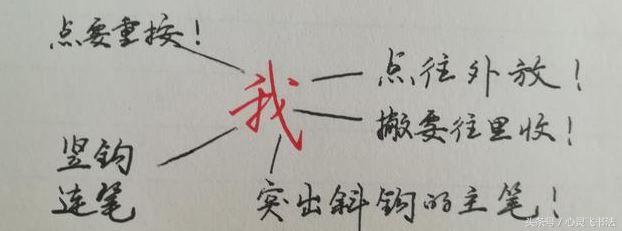 点要重按！
我
点往外放！
撇要往里收！
竖钩
连笔
突出斜钩的主笔！
头条号/心灵飞书法